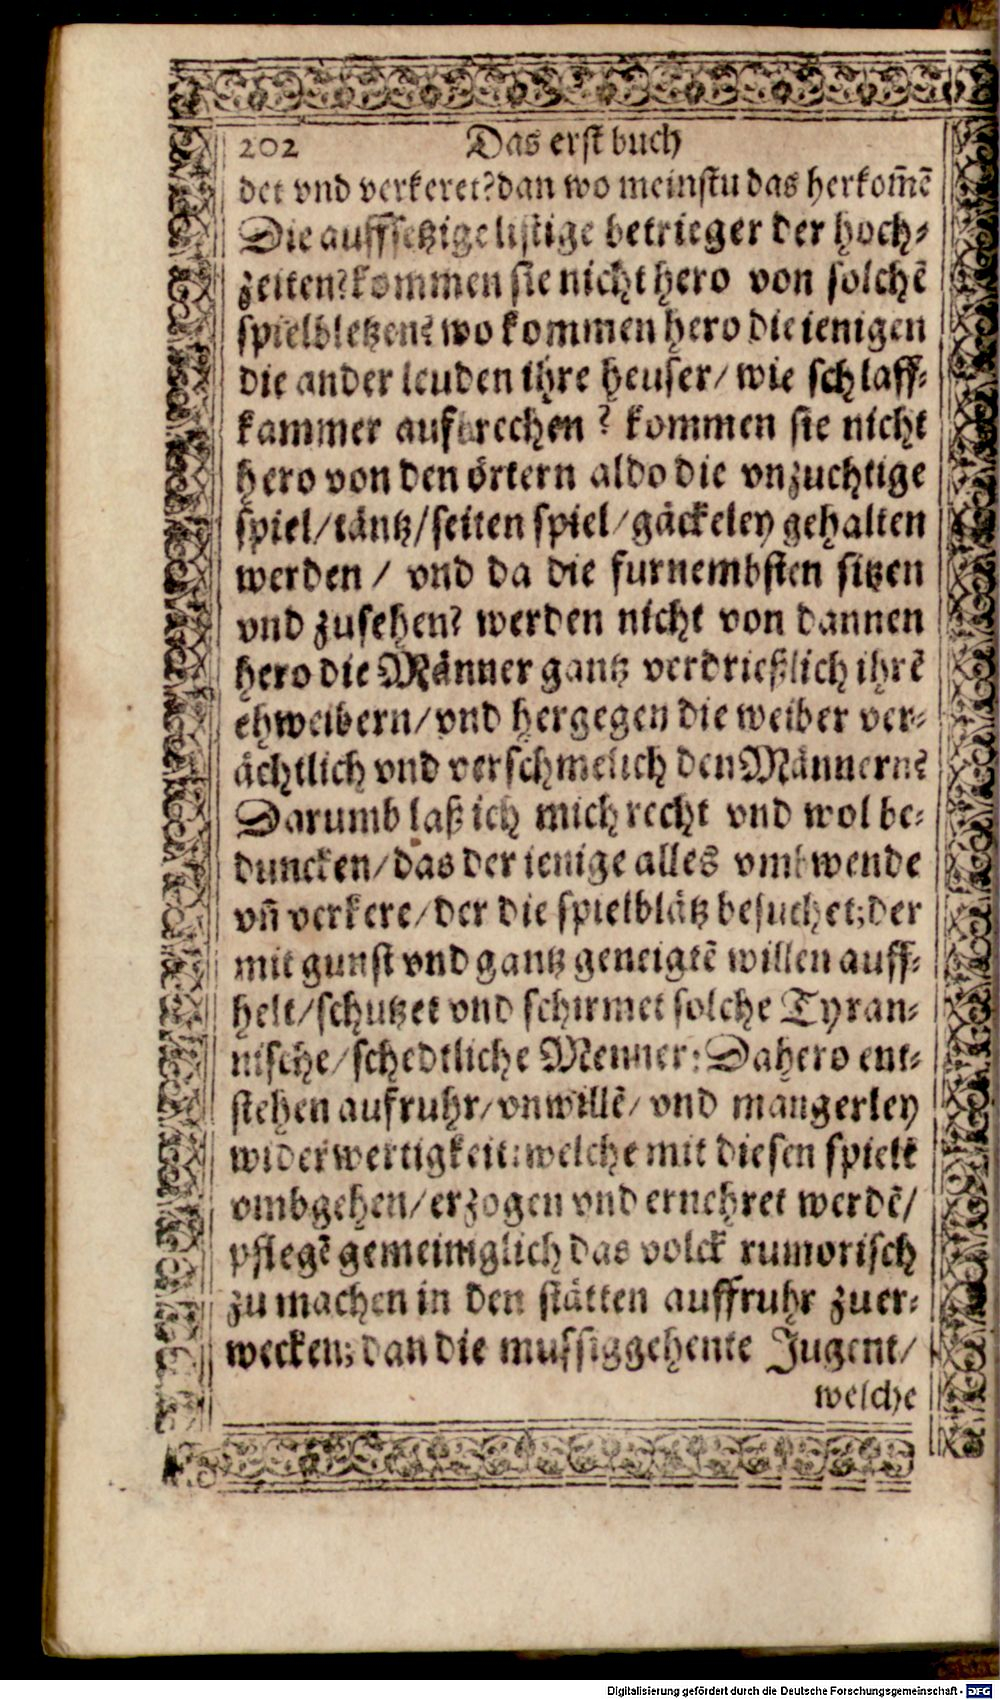 202 Das erst buch
det vnd verkeret? dan wo meinstu das herkom̃ẽ
Die auffsetzige listige betrieger der hoch⸗
zeiten? kommen sie nicht hero von solchẽ
spielbletzen? wo kommen hero die ienigen
die ander leuden ihre heuser/ wie schlaff⸗
kammer aufbrechen? kommen sie nicht
hero von den örtern aldo die vnzuchtige
spiel/ täntz/ seiten spiel/ gäckeley gehalten
werden/ vnd da die furnembsten sitzen
vnd zusehen? werden nicht von dannen
hero die Männer gantz verdrießlich ihrẽ
ehweibern/ vnd hergegen die weiber ver⸗
ächtlich vnd verschmelich den Männern?
Darumb laß ich mich recht vnd wol be⸗
duncken/ das der ienige alles vmbwende
vñ verkere/ der die spielblätz besuchet; der
mit gunst vnd gantz geneigtẽ willen auff⸗
helt/ schutzet vnd schirmet solche Tyran⸗
nische/ schedtliche Menner: Dahero ent⸗
stehen aufruhr/ vnwillẽ/ vnd mangerley
widerwertigkeit: welche mit diesen spielẽ
vmbgehen/ erzogen vnd ernehret werdẽ/
pflegẽ gemeiniglich das volck rumorisch
zu machen in den stätten auffruhr zuer⸗
wecken; dan die mussiggehente Jugent/
welche
Digitalisierung gefördert durch die Deutsche Forschungsgemeinschaft - DFG